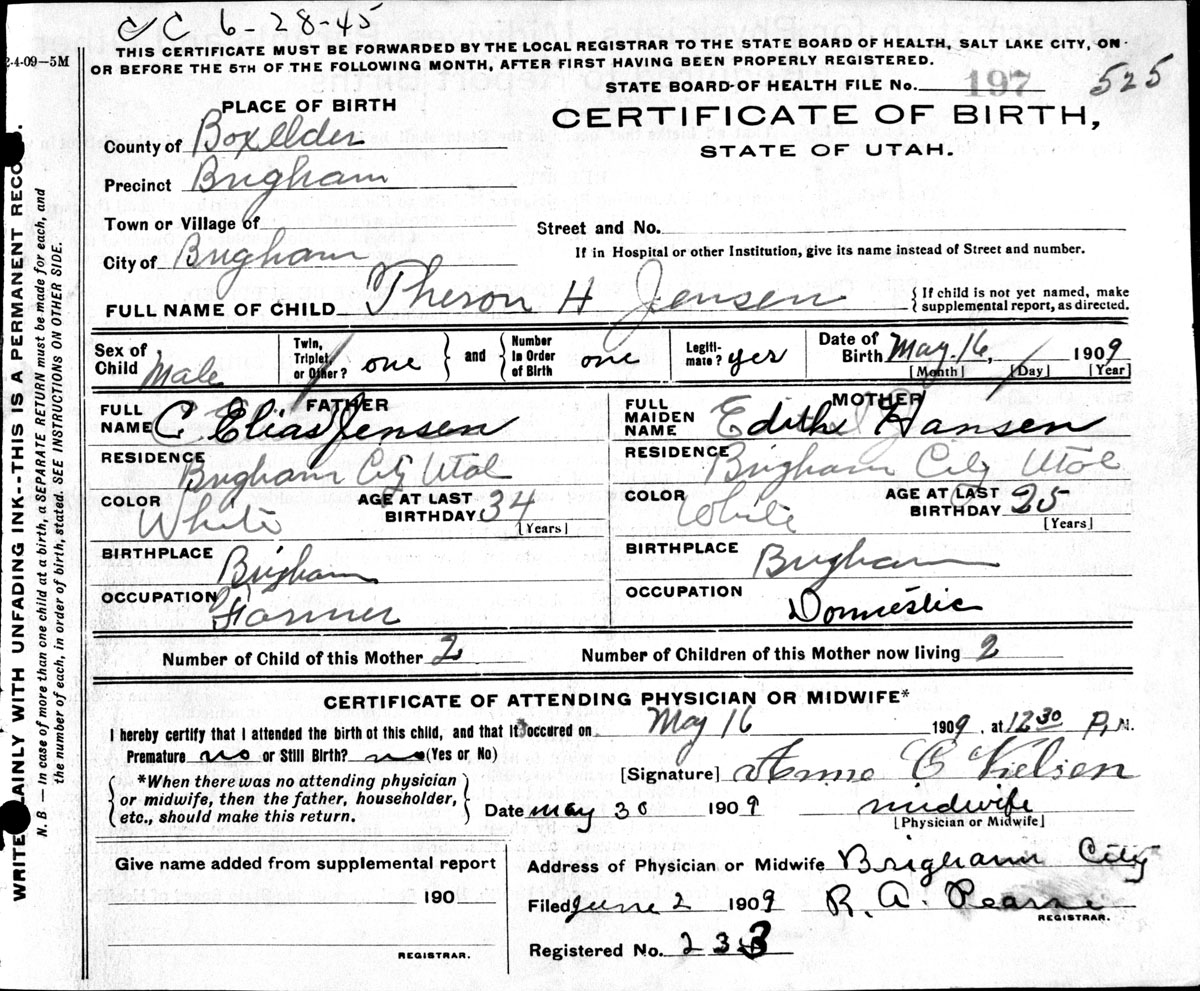 CC 6-28-45
2-4-09—5M
THIS CERTIFICATE MUST BE FORWARDED BY THE LOCAL REGISTRAR TO THE STATE BOARD OF HEALTH, SALT LAKE CITY, ON
OR BEFORE THE 5TH OF THE FOLLOWING MONTH, AFTER FIRST HAVING BEEN PROPERLY REGISTERED.
STATE BOARD OF HEALTH FILE No. 197 525
PLACE OF BIRTH
CERTIFICATE OF BIRTH,
STATE OF UTAH.
County of Boxelder
Precinct Brigham
Town or Village of
Street and No.
City of Brigham
If in Hospital or other Institution, give its name instead of Street and number.
FULL NAME OF CHILD Theron H Jensen
{ If child is not yet named, make
supplemental report, as directed.
Sex of Child Male
Twin, Triplet, or Other? one } and { Number In Order of Birth one
Legitimate? yes
Date of Birth May 16, 1909
[Month] [Day] [Year]
FATHER
FULL NAME C Elias Jensen
RESIDENCE Brigham City Utah
COLOR White
AGE AT LAST BIRTHDAY 34
[Years]
BIRTHPLACE Brigham
OCCUPATION Farmer
MOTHER
FULL MAIDEN NAME Edith Hansen
RESIDENCE Brigham City Utah
COLOR White
AGE AT LAST BIRTHDAY 25
[Years]
BIRTHPLACE Brigham
OCCUPATION Domestic
Number of Child of this Mother 2
Number of Children of this Mother now living 2
CERTIFICATE OF ATTENDING PHYSICIAN OR MIDWIFE*
I hereby certify that I attended the birth of this child, and that it occured on May 16 1909, at 12 30 P.M.
Premature no or Still Birth? no (Yes or No)
{ *When there was no attending physician
or midwife, then the father, householder,
etc., should make this return. }
[Signature] C Nielsen
Date May 30 1909
midwife
[Physician or Midwife]
Give name added from supplemental report
190
REGISTRAR.
Address of Physician or Midwife Brigham City
Filed June 2 1909 R. A. Pearse
REGISTRAR.
Registered No. 233
WRITE PLAINLY WITH UNFADING INK--THIS IS A PERMANENT RECORD.
N. B — In case of more than one child at a birth, a SEPARATE RETURN must be made for each, and
the number of each, in order of birth, stated. SEE INSTRUCTIONS ON OTHER SIDE.